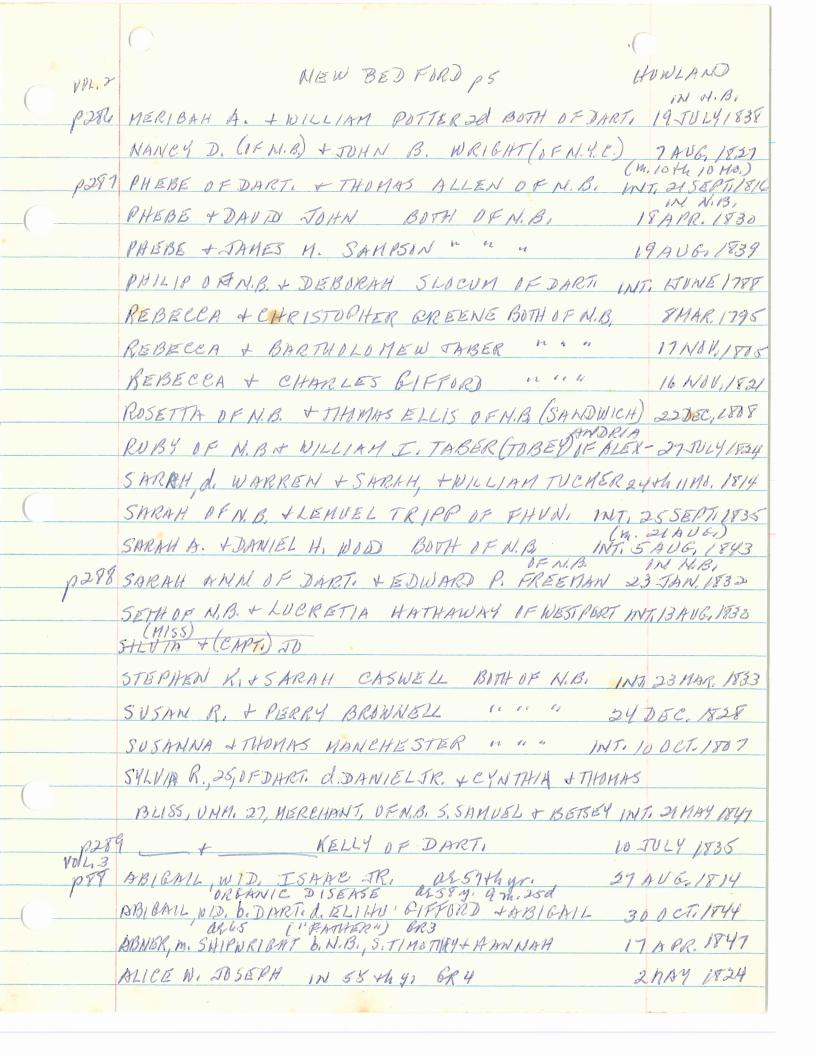 VOL. 2 NEW BEDFORD p5 HOWLAND
IN N.B.
p286 MERIBAH A. + WILLIAM POTTER 2d BOTH OF DART. 19 JULY 1838
NANCY D. (OF N.B.) + JOHN B. WRIGHT (OF N.Y.C.) 7 AUG. 1827
(m. 10th 10 MO.)
p287 PHEBE OF DART. + THOMAS ALLEN OF N.B. INT. 21 SEPT. 1816
IN N.B.
PHEBE + DAVID JOHN BOTH OF N.B. 18 APR. 1830
PHEBE + JAMES M. SAMPSON " " " 19 AUG. 1839
PHILIP OF N.B. + DEBORAH SLOCUM OF DART. INT. JUNE 1788
REBECCA + CHRISTOPHER GREENE BOTH OF N.B. 8 MAR. 1795
REBECCA + BARTHOLOMEW TABER " " " 17 NOV. 1805
REBECCA + CHARLES GIFFORD " " " 16 NOV. 1821
ROSETTA OF N.B. + THOMAS ELLIS OF N.B. (SANDWICH) 22 DEC. 1808
ANDRIA
RUBY OF N.B. + WILLIAM I. TABER (TOBEY) OF ALEX- 27 JULY 1824
SARAH, d. WARREN + SARAH, + WILLIAM TUCKER 24th 11 MO. 1814
SARAH OF N.B. + LEMUEL TRIPP OF FHVN. INT. 25 SEPT. 1835
(m. 21 AUG.)
SARAH A. + DANIEL H. WOOD BOTH OF N.B. INT. 5 AUG. 1843
OF N.B. IN N.B.
p288 SARAH ANN OF DART. + EDWARD P. FREEMAN 23 JAN. 1832
SETH OF N.B. + LUCRETIA HATHAWAY OF WESTPORT INT. 13 AUG. 1830
(MISS)
SILVIA + (CAPT.) JO
STEPHEN K. + SARAH CASWELL BOTH OF N.B. INT. 23 MAR. 1833
SUSAN R. + PERRY BROWNELL " " " 24 DEC. 1828
SUSANNA + THOMAS MANCHESTER " " " INT. 10 OCT. 1807
SYLVIA R., 25, OF DART. d. DANIEL JR. + CYNTHIA + THOMAS
BLISS, UNM. 27, MERCHANT, OF N.B. S. SAMUEL + BETSEY INT. 21 MAY 1847
p289 ____ + ________ KELLY OF DART. 10 JULY 1835
VOL. 3
p88 ABIGAIL, WID. ISAAC JR. ae 57th yr. 27 AUG. 1814
ORGANIC DISEASE ae 58 y. 9 m. 25d
ABIGAIL, WID. b. DART. d. ELIHU GIFFORD + ABIGAIL 30 OCT. 1844
ae 65 ("FATHER") GR3
ABNER, m. SHIPWRIGHT b. N.B., S. TIMOTHY + HANNAH 17 APR. 1847
ALICE W. JOSEPH IN 55th yr GR4 2 MAY 1824